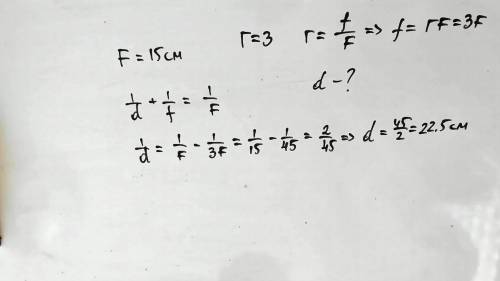 F = 15 см   Γ=3   Γ = f/F => f = ΓF = 3F
d - ?
1/d + 1/f = 1/F
1/d = 1/F - 1/3F = 1/15 - 1/45 = 2/45 => d = 45/2 = 22.5 см